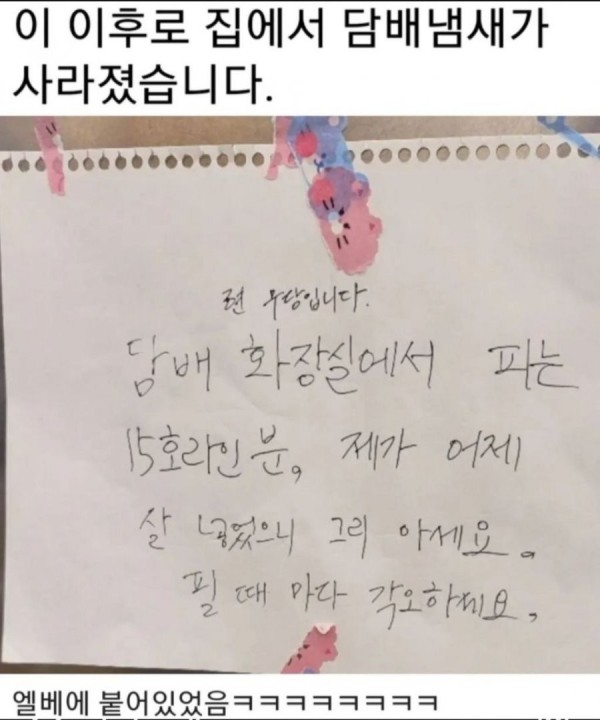 이 이후로 집에서 담배냄새가
사라졌습니다.
무당입니다.
담배 화장실에서 피는
15호라인분, 제가 어제
살 넣었으니 그리 아세요.
필 때 마다 각오하세요,
엘베에 붙어있었음ㅋㅋㅋㅋㅋㅋㅋㅋㅋ